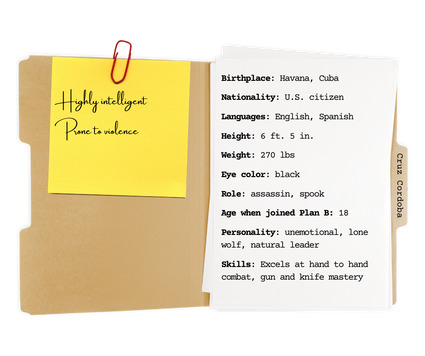 Highly intelligent
Prone to violence
Birthplace: Havana, Cuba
Nationality: U.S. citizen
Languages: English, Spanish
Height: 6 ft. 5 in.
Weight: 270 lbs
Eye color: black
Role: assassin, spook
Age when joined Plan B: 18
Personality: unemotional, lone
wolf, natural leader
Skills: Excels at hand to hand
combat, gun and knife mastery
Cruz Cordoba